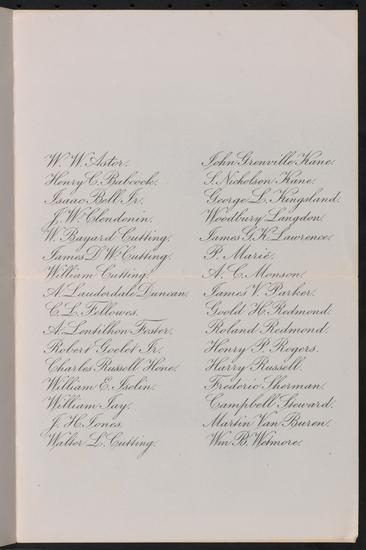 W. W. Astor.
Henry C. Babcock.
Isaac Bell Jr.
J. W. Clendenin.
W. Bayard Cutting.
James D. W. Cutting.
William Cutting.
A. Lauderdale Duncan.
C. L. Fellowes.
A. Lentilhon Foster.
Robert Goelet Jr.
Charles Russell Hone.
William E. Iselin.
William Jay.
J. H. Jones.
Walter L. Cutting.
John Grenville Kane.
S. Nicholson Kane.
George L. Kingsland.
Woodbury Langdon.
James G. K. Lawrence.
P. Marié.
A. C. Monson.
James V. Parker.
Goold H. Redmond.
Roland Redmond.
Henry P. Rogers.
Harry Russell.
Frederic Sherman.
Campbell Steward.
Martin Van Buren.
Wm B. Wetmore.